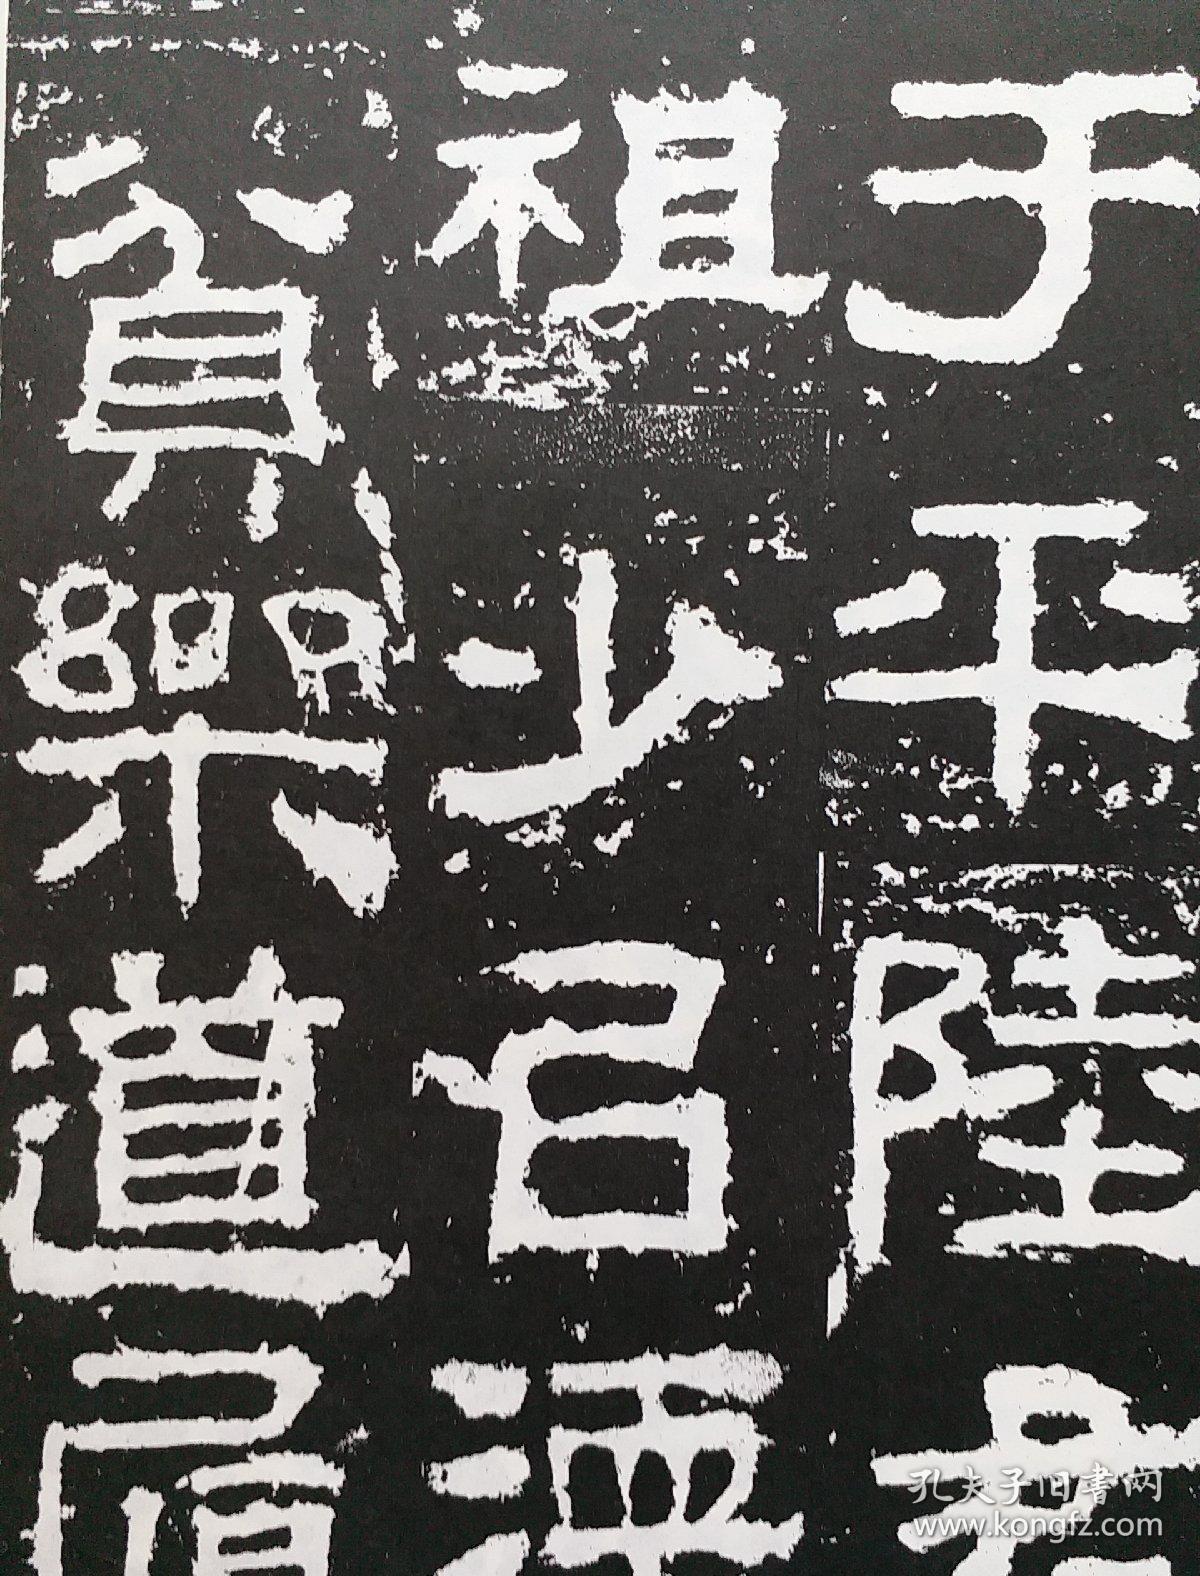 于平陸君
祖少以濡
貧樂道履
孔夫子旧書网
www.kongfz.com